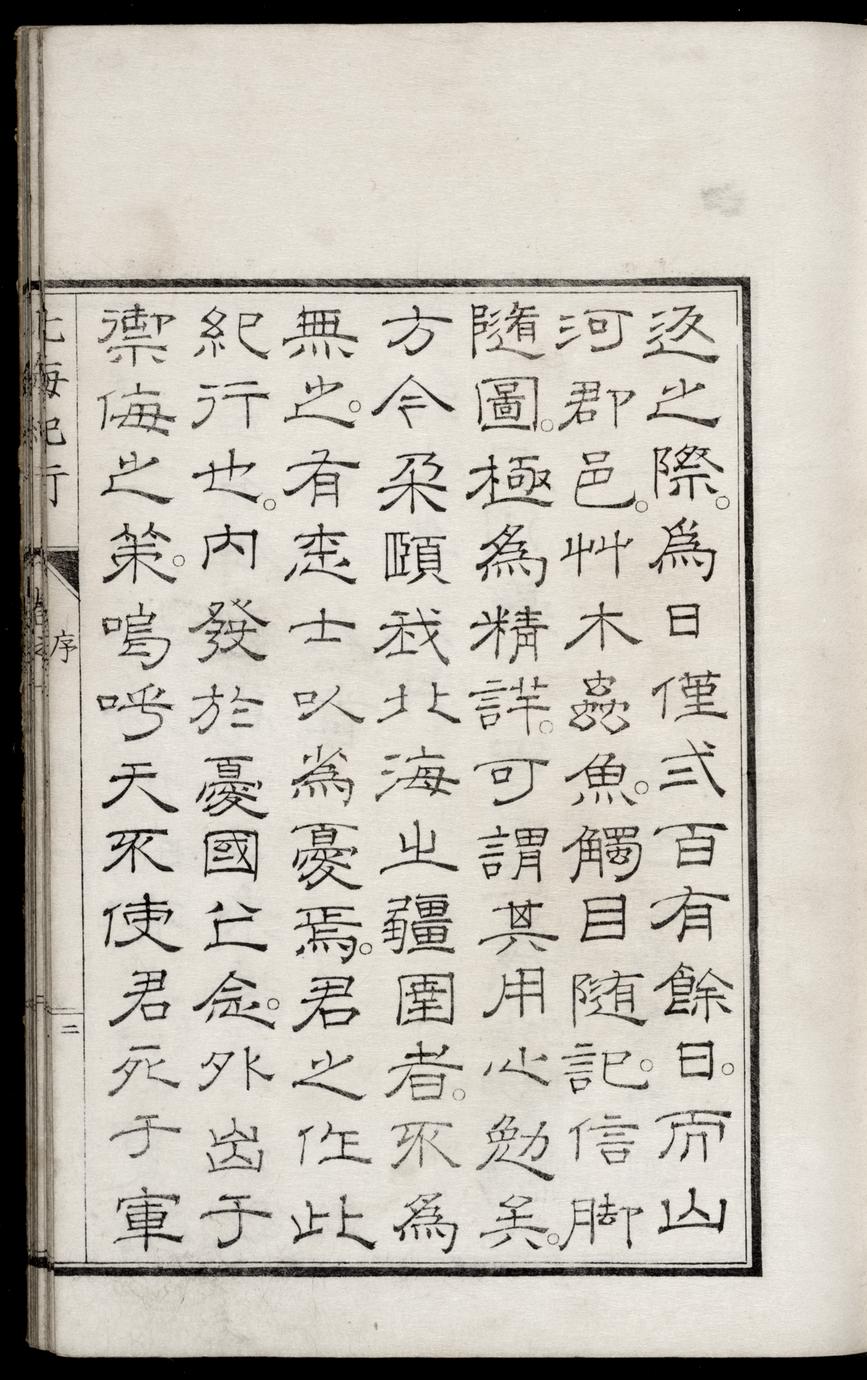 返之際。為日僅弍百有餘日。而山
河郡邑。艸木蟲魚。觸目隨記。信脚
隨圖。極為精詳。可謂其用心勉矣。
方今朶頤我北海之疆圉者。不為
無之。有志士以為憂焉。君之作此
紀行也。內發於憂國之念。外出于
禦侮之策。嗚呼天不使君死于軍
北海紀行
序
二